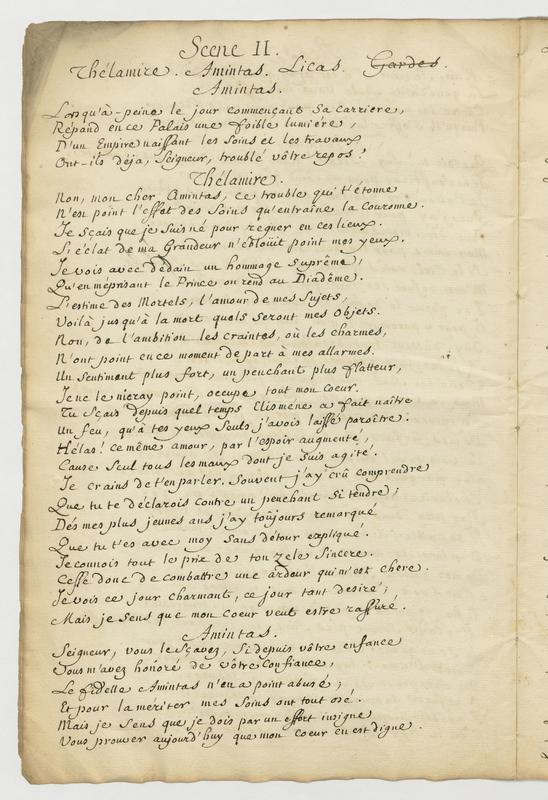 Scene II.
Thélamire. Amintas. Licas. Gardes.
Amintas.
Lorsqu'à-peine le jour commençant sa carriere,
Répand en ce Palais une foible lumiére,
D'un Empire naissant les soins et les travaux
Ont-ils déja, Seigneur, troublé vôtre repos?
Thélamire.
Non, mon cher Amintas, ce trouble qui t'étonne
N'est point l'effet des Soins qu'entraîne la Couronne.
Je sçais que je suis né pour regner en ces lieux.
Si l'éclat de ma Grandeur n'éblouït point mes yeux.
Je vois avec dédain un hommage suprême,
Qu'en méprisant le Prince on rend au Diadême.
L'estime des Mortels, l'amour de mes Sujets,
Voilà jusqu'à la mort quels seront mes objets.
Non, de l'ambition les craintes, où les charmes,
N'ont point en ce moment de part à mes allarmes.
Un Sentiment plus fort, un penchant plus flatteur,
Je ne le nieray point, occupe tout mon Coeur.
Tu Sçais depuis quel temps Clisméne a fait naître
Un feu, qu'à tes yeux Seuls j'avois laissé paroître.
Hélas! Ce même amour, par l'espoir augmenté,
Cause Seul tous les maux dont je suis agité.
Je crains de t'en parler. Souvent j'ay crû comprendre
Que tu te déclarois contre un penchant si tendre;
Dés mes plus jeunes ans j'ay toûjours remarqué
Que tu t'es avec moy Sans détour expliqué.
Je connois tout le prix de ton zele Sincere.
Cesse donc de combattre une ardeur qui m'est chere.
Je vois ce jour charmant, ce jour tant desiré;
Mais je sens que mon Coeur veut estre rassuré.
Amintas.
Seigneur, vous le Sçavez, Si depuis vôtre enfance
Vous m'avez honoré de vôtre Confiance,
Le fidelle Amintas n'en a point abusé;
Et pour la meriter mes Soins ont tout osé.
Mais je Sens que je dois par un effort insigne
Vous prouver aujourd'huy que mon coeur en est digne.